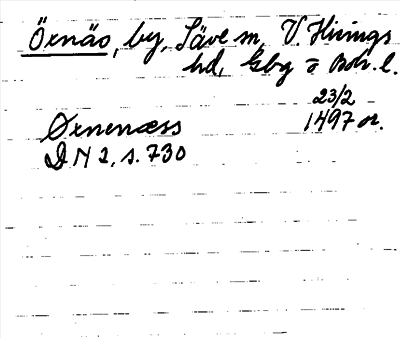 Örnäs, by, Säve sn, V. Hisings
hd, Gbg o Boh. l.
23/2
Ørnenæss 1497 or.
DN 2, s. 730